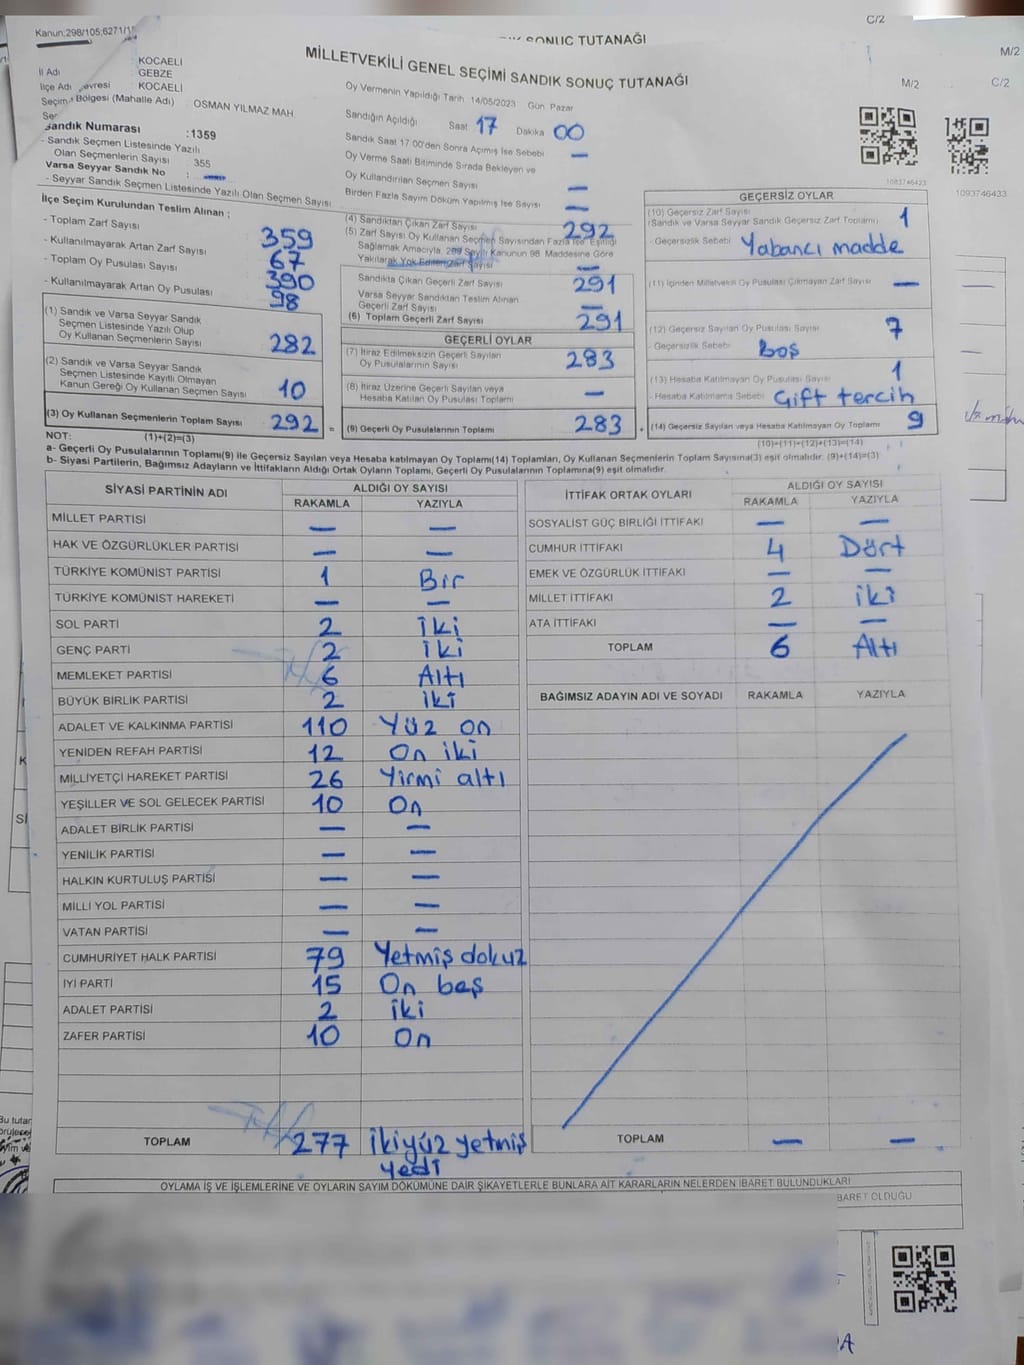 C/2
Kanun:298/105;6271/1
SONUÇ TUTANAĞI
M/2
MİLLETVEKİLİ GENEL SEÇİMİ SANDIK SONUÇ TUTANAĞI
M/2
C/2
İl Adı KOCAELİ
İlçe Adı GEBZE
çevresi KOCAELİ
Seçim Bölgesi (Mahalle Adı) OSMAN YILMAZ MAH.
Sandık Numarası :1359
- Sandık Seçmen Listesinde Yazılı
Olan Seçmenlerin Sayısı : 355
Varsa Seyyar Sandık No : —
- Seyyar Sandık Seçmen Listesinde Yazılı Olan Seçmen Sayısı
Oy Vermenin Yapıldığı Tarih 14/05/2023 Gün Pazar
Sandığın Açıldığı Saat 17 Dakika 00
Sandık Saat 17:00'den Sonra Açılmış İse Sebebi —
Oy Verme Saati Bitiminde Sırada Bekleyen ve
Oy Kullandırılan Seçmen Sayısı —
Birden Fazla Sayım Döküm Yapılmış İse Sayısı —
1093746423
1093746433
İlçe Seçim Kurulundan Teslim Alınan ;
- Toplam Zarf Sayısı 359
- Kullanılmayarak Artan Zarf Sayısı 67
- Toplam Oy Pusulası Sayısı 390
- Kullanılmayarak Artan Oy Pusulası 98
(1) Sandık ve Varsa Seyyar Sandık
Seçmen Listesinde Yazılı Olup
Oy Kullanan Seçmenlerin Sayısı 282
(2) Sandık ve Varsa Seyyar Sandık
Seçmen Listesinde Kayıtlı Olmayan
Kanun Gereği Oy Kullanan Seçmen Sayısı 10
(3) Oy Kullanan Seçmenlerin Toplam Sayısı 292 =
(4) Sandıktan Çıkan Zarf Sayısı 292
(5) Zarf Sayısı Oy Kullanan Seçmen Sayısından Fazla ise, Eşitliği
Sağlamak Amacıyla, 298 Sayılı Kanunun 98. Maddesine Göre
Yakılarak Yok Edilen Zarf Sayısı —
Sandıkta Çıkan Geçerli Zarf Sayısı 291
Varsa Seyyar Sandıktan Teslim Alınan
Geçerli Zarf Sayısı —
(6) Toplam Geçerli Zarf Sayısı 291
GEÇERLİ OYLAR
(7) İtiraz Edilmeksizin Geçerli Sayılan
Oy Pusulalarının Sayısı 283
(8) İtiraz Üzerine Geçerli Sayılan veya
Hesaba Katılan Oy Pusulası Toplamı —
(9) Geçerli Oy Pusulalarının Toplamı 283 +
GEÇERSİZ OYLAR
(10) Geçersiz Zarf Sayısı
(Sandık ve Varsa Seyyar Sandık Geçersiz Zarf Toplamı) 1
- Geçersizlik Sebebi Yabancı madde
(11) İçinden Milletvekili Oy Pusulası Çıkmayan Zarf Sayısı —
(12) Geçersiz Sayılan Oy Pusulası Sayısı 7
- Geçersizlik Sebebi Boş
(13) Hesaba Katılmayan Oy Pusulası Sayısı 1
- Hesaba Katılmama Sebebi Çift tercih
(14) Geçersiz Sayılan veya Hesaba Katılmayan Oy Toplamı 9
(10)+(11)+(12)+(13)=(14)
NOT: (1)+(2)=(3)
a- Geçerli Oy Pusulalarının Toplamı(9) ile Geçersiz Sayılan veya Hesaba katılmayan Oy Toplamı(14) Toplamları, Oy Kullanan Seçmenlerin Toplam Sayısına(3) eşit olmalıdır. (9)+(14)=(3)
b- Siyasi Partilerin, Bağımsız Adayların ve İttifakların Aldığı Ortak Oyların Toplamı, Geçerli Oy Pusulalarının Toplamına(9) eşit olmalıdır.
SİYASİ PARTİNİN ADI ALDIĞI OY SAYISI
RAKAMLA YAZIYLA
MİLLET PARTİSİ — —
HAK VE ÖZGÜRLÜKLER PARTİSİ — —
TÜRKİYE KOMÜNİST PARTİSİ 1 Bir
TÜRKİYE KOMÜNİST HAREKETİ — —
SOL PARTİ 2 İki
GENÇ PARTİ 2 İki
MEMLEKET PARTİSİ 6 Altı
BÜYÜK BİRLİK PARTİSİ 2 İki
ADALET VE KALKINMA PARTİSİ 110 Yüz on
YENİDEN REFAH PARTİSİ 12 On iki
MİLLİYETÇİ HAREKET PARTİSİ 26 Yirmi altı
YEŞİLLER VE SOL GELECEK PARTİSİ 10 On
ADALET BİRLİK PARTİSİ — —
YENİLİK PARTİSİ — —
HALKIN KURTULUŞ PARTİSİ — —
MİLLİ YOL PARTİSİ — —
VATAN PARTİSİ — —
CUMHURİYET HALK PARTİSİ 79 Yetmiş dokuz
İYİ PARTİ 15 On beş
ADALET PARTİSİ 2 iki
ZAFER PARTİSİ 10 On
TOPLAM 277 İkiyüz yetmiş
yedi
İTTİFAK ORTAK OYLARI ALDIĞI OY SAYISI
RAKAMLA YAZIYLA
SOSYALİST GÜÇ BİRLİĞİ İTTİFAKI — —
CUMHUR İTTİFAKI 4 Dört
EMEK VE ÖZGÜRLÜK İTTİFAKI — —
MİLLET İTTİFAKI 2 iki
ATA İTTİFAKI — —
TOPLAM 6 Altı
BAĞIMSIZ ADAYIN ADI VE SOYADI RAKAMLA YAZIYLA
TOPLAM — —
OYLAMA İŞ VE İŞLEMLERİNE VE OYLARIN SAYIM DÖKÜMÜNE DAİR ŞİKAYETLERLE BUNLARA AİT KARARLARIN NELERDEN İBARET BULUNDUKLARI
BARET OLDUĞU
Bu tutar